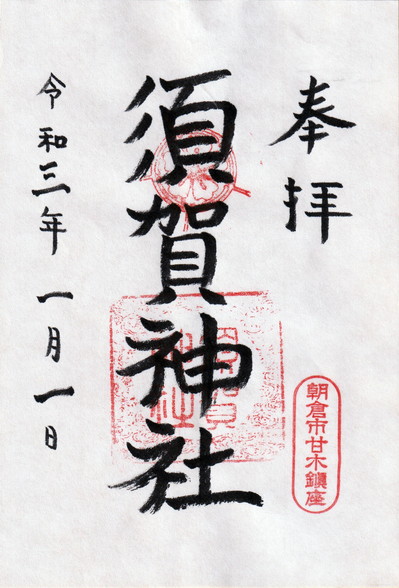 奉拝
朝倉市甘木鎮座
須賀神社
令和三年一月一日